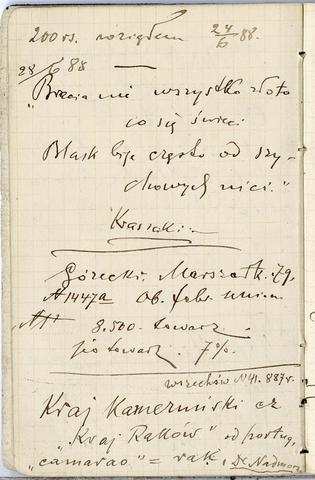 200 rs. wziąłem 24/6 88.
28/6 88
"Bracia nie wszystko złoto
co się świeci
Blask bije często od szy-
chowych nici."
Krasicki.
Górecki. Marszałk. 79.
A 1447a Ob. fabr.
3.500. towarz.
po towarz. 7%.
wszechśw N 41. 887 r.
Kraj Kameruński cz
"Kraj Raków" od portug.
"camarao" = rak, Dr Nadmor